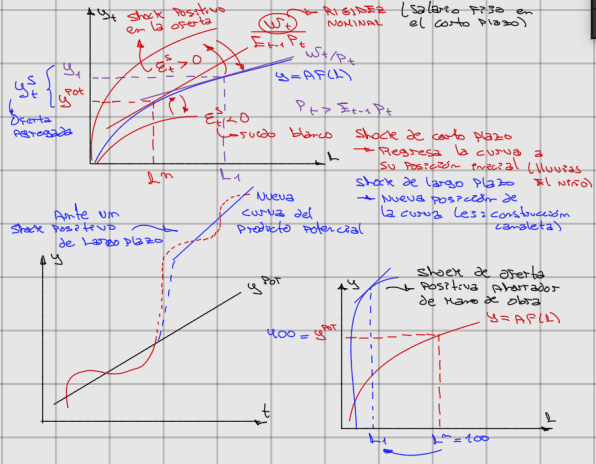 yt
Shock Positivo
en la oferta
Wt
Et-1 Pt
→ RIGIDEZ
NOMINAL
(Salario Fijo en
el corto plazo)
εtˢ > 0
Wt/Pt
y = AF(L)
y1
ytˢ
yᴾᵒᵗ
Oferta
Agregada
Pt > Et-1 Pt
εtˢ < 0
→ ruido blanco
L
Lⁿ
L1
Shock de corto plazo
→ Regresa la curva a
su posición inicial (lluvias
El niño)
Shock de largo plazo
→ Nueva posición de
la curva (es: construcción
canaleta)
Ante un
Shock positivo
de Largo plazo
Nueva
curva del
Producto potencial
y
yᴾᵒᵗ
t
Shock de oferta
Positiva Ahorrador
de Mano de obra
y
y = AF(L)
400 = yᴾᵒᵗ
L1
Lⁿ = 100
L